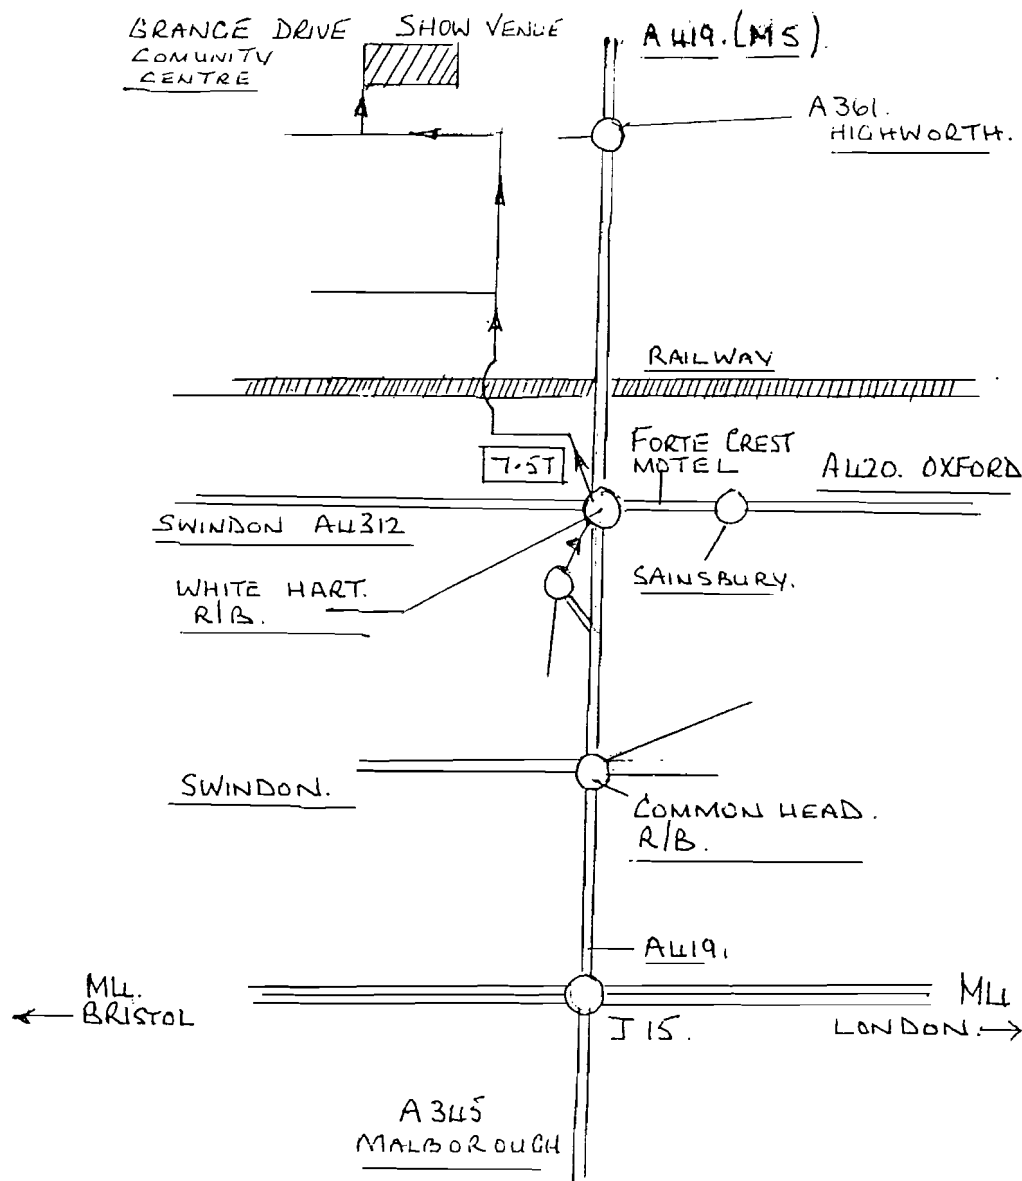 GRANGE DRIVE SHOW VENUE
COMUNITY
CENTRE
A419. (M5).
A361.
HIGHWORTH.
RAILWAY
7.5T
FORTE CREST
MOTEL
A420. OXFORD
SWINDON A4312
WHITE HART.
R/B.
SAINSBURY.
SWINDON.
COMMON HEAD.
R/B.
A419.
M4.
BRISTOL
J 15.
M4
LONDON.
A345
MALBOROUGH